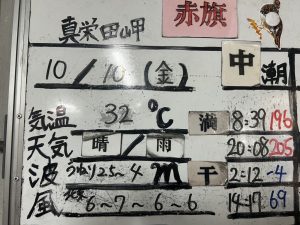 真栄田岬 赤旗
10/10(金) 中潮
気温 32℃ 満 8:39 196
天気 晴/雨 20:08 205
波 2.5~4m 干 2:12 -4
風 6~7~6~6 14:17 69